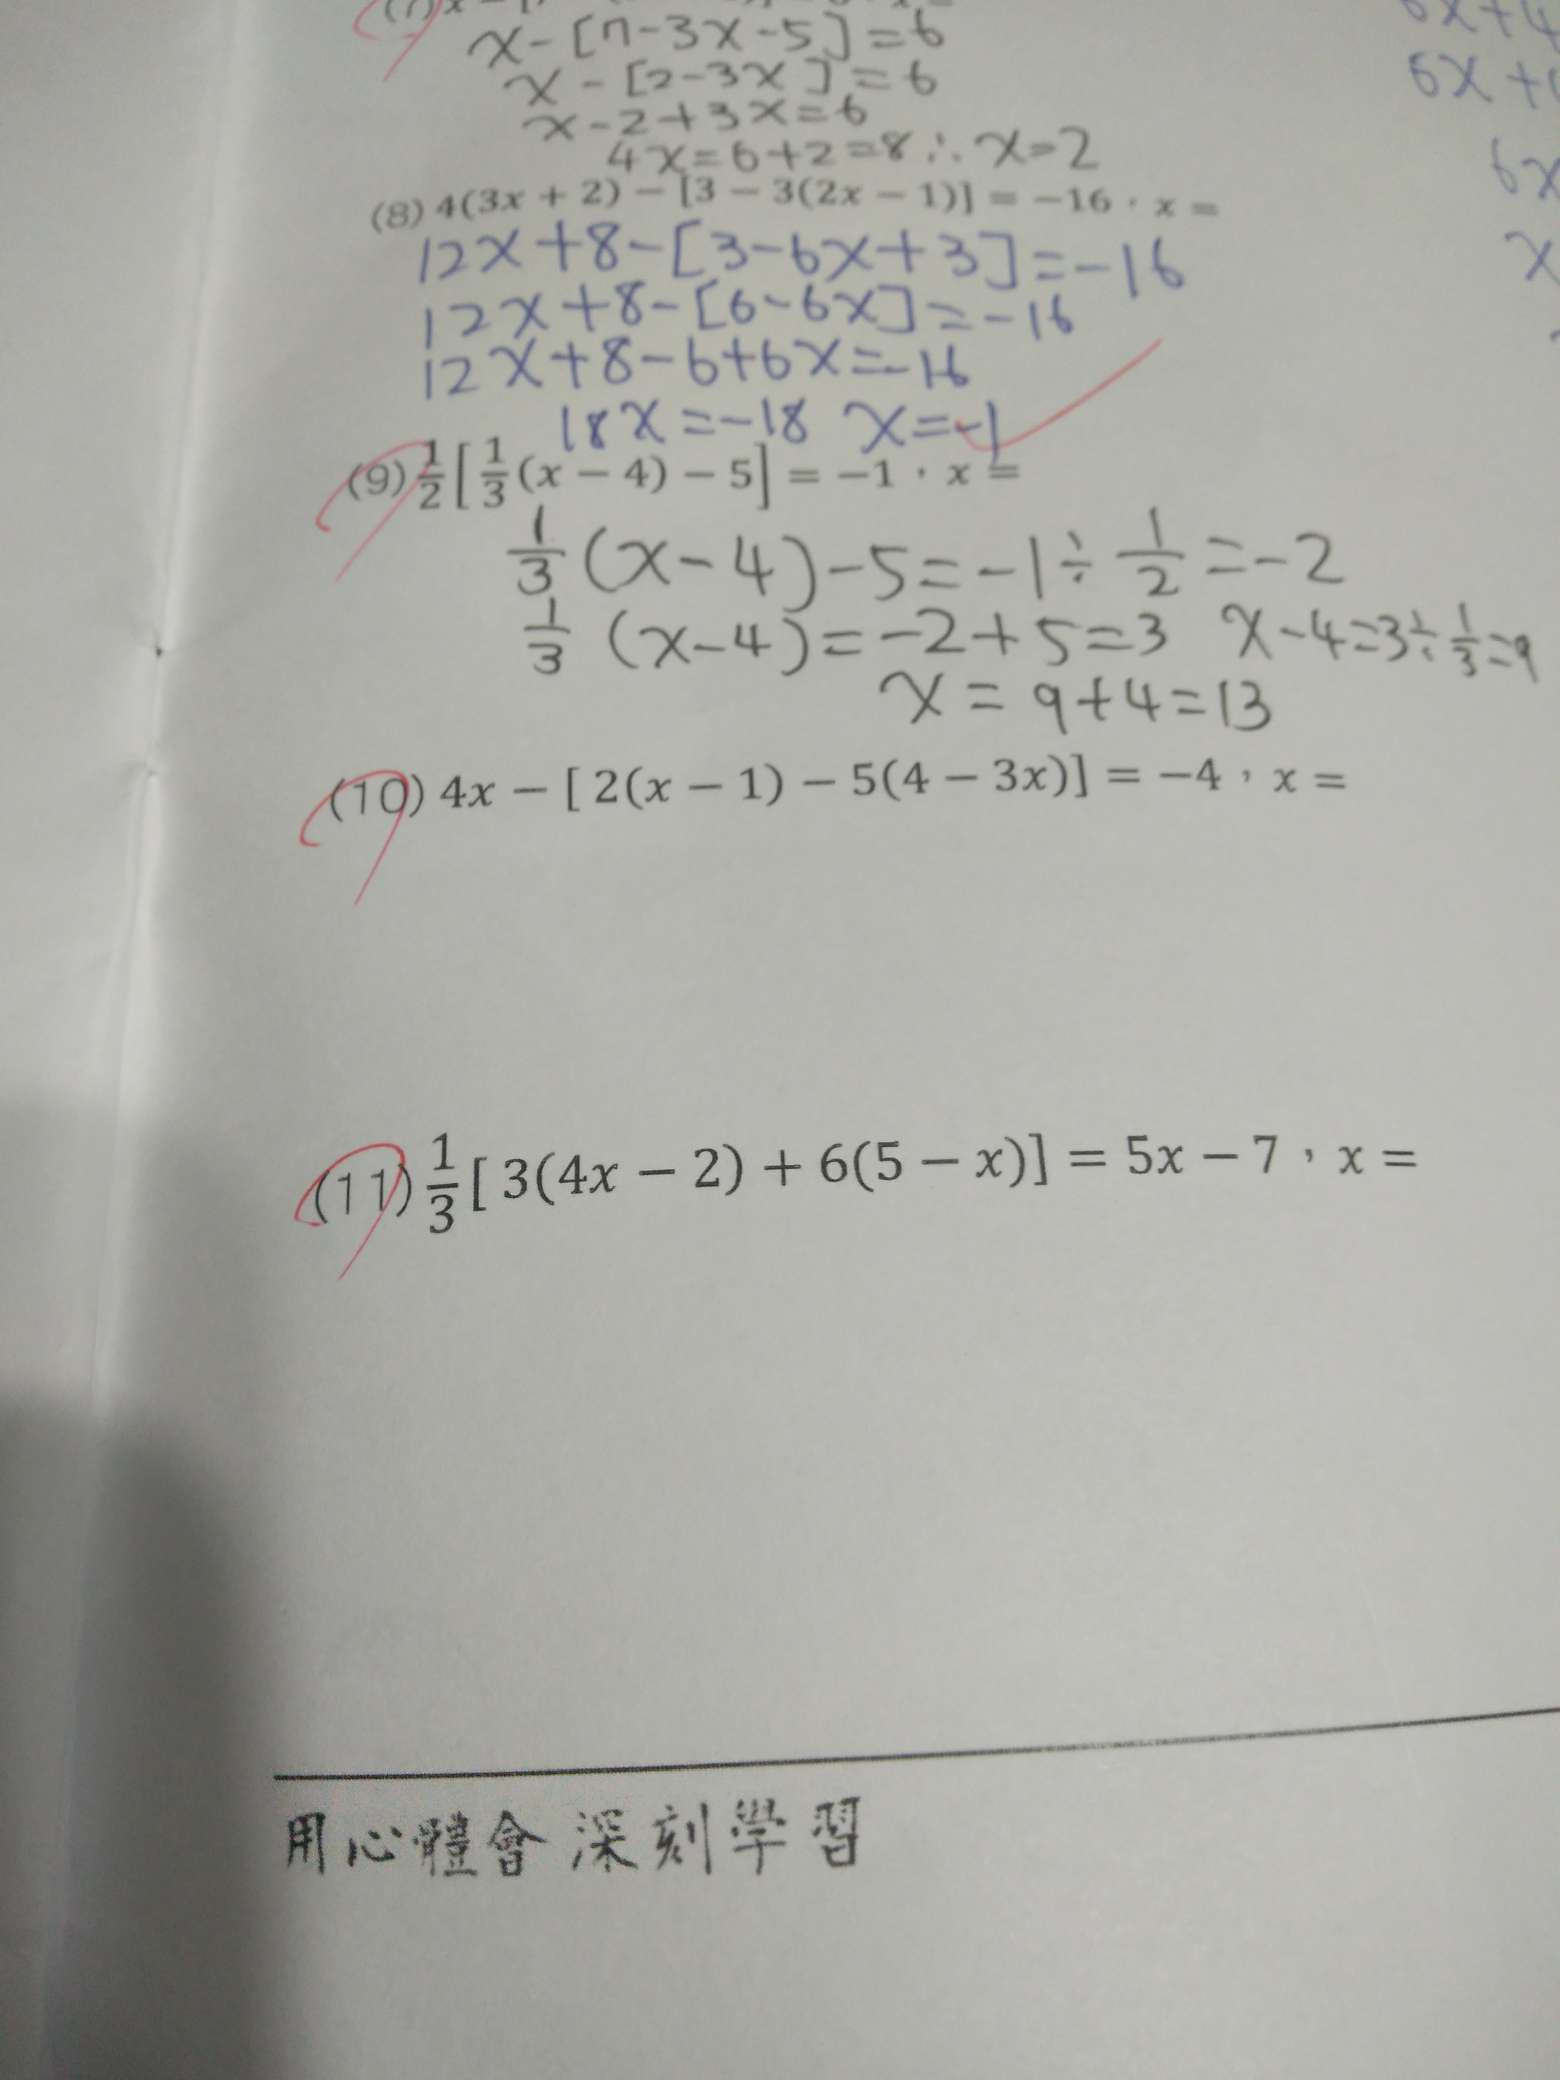 x-[7-3x-5]=6
x-[2-3x]=6
x-2+3x=6
4x=6+2=8∴x=2
(8) 4(3x + 2) − [3 − 3(2x − 1)] = −16，x =
12x+8-[3-6x+3]=-16
12x+8-[6-6x]=-16
12x+8-6+6x=-16
18x=-18 x=-1
(9) 1/2[1/3(x − 4) − 5] = −1，x =
1/3(x-4)-5=-1÷1/2=-2
1/3(x-4)=-2+5=3 x-4=3÷1/3=9
x=9+4=13
(10) 4x − [ 2(x − 1) − 5(4 − 3x)] = −4，x =
(11) 1/3[ 3(4x − 2) + 6(5 − x)] = 5x − 7，x =
用心體會 深刻學習
6x
x